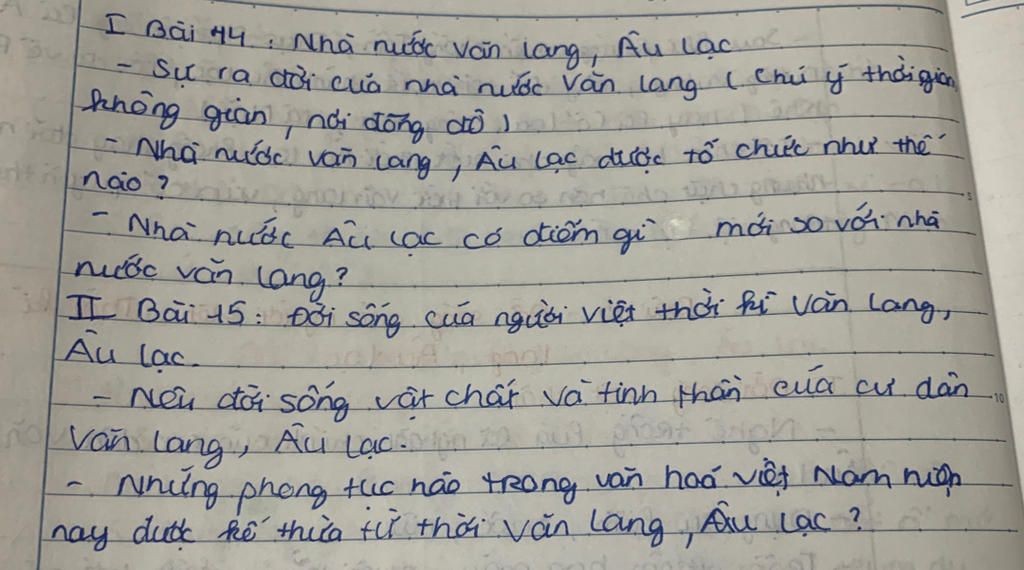 I Bài 14: Nhà nước Văn lang, Âu Lạc
- Sự ra đời của nhà nước Văn lang (chú ý thời gian,
không gian, nơi đóng đô)
- Nhà nước văn lang, Âu Lạc được tổ chức như thế
nào?
- Nhà nước Âu Lạc có điểm gì mới so với nhà
nước văn lang?
II Bài 15: Đời sống của người việt thời kì Văn Lang,
Âu Lạc.
- Nêu đời sống vật chất và tinh thần của cư dân
Văn Lang, Âu Lạc.
- Những phong tục nào trong văn hoá việt Nam hiện
nay được kế thừa từ thời văn Lang, Âu Lạc?